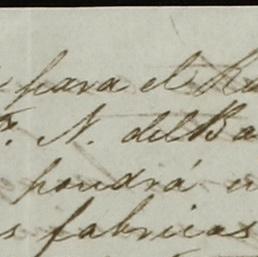 para el
N. del Ba
pondrá
s fabricas